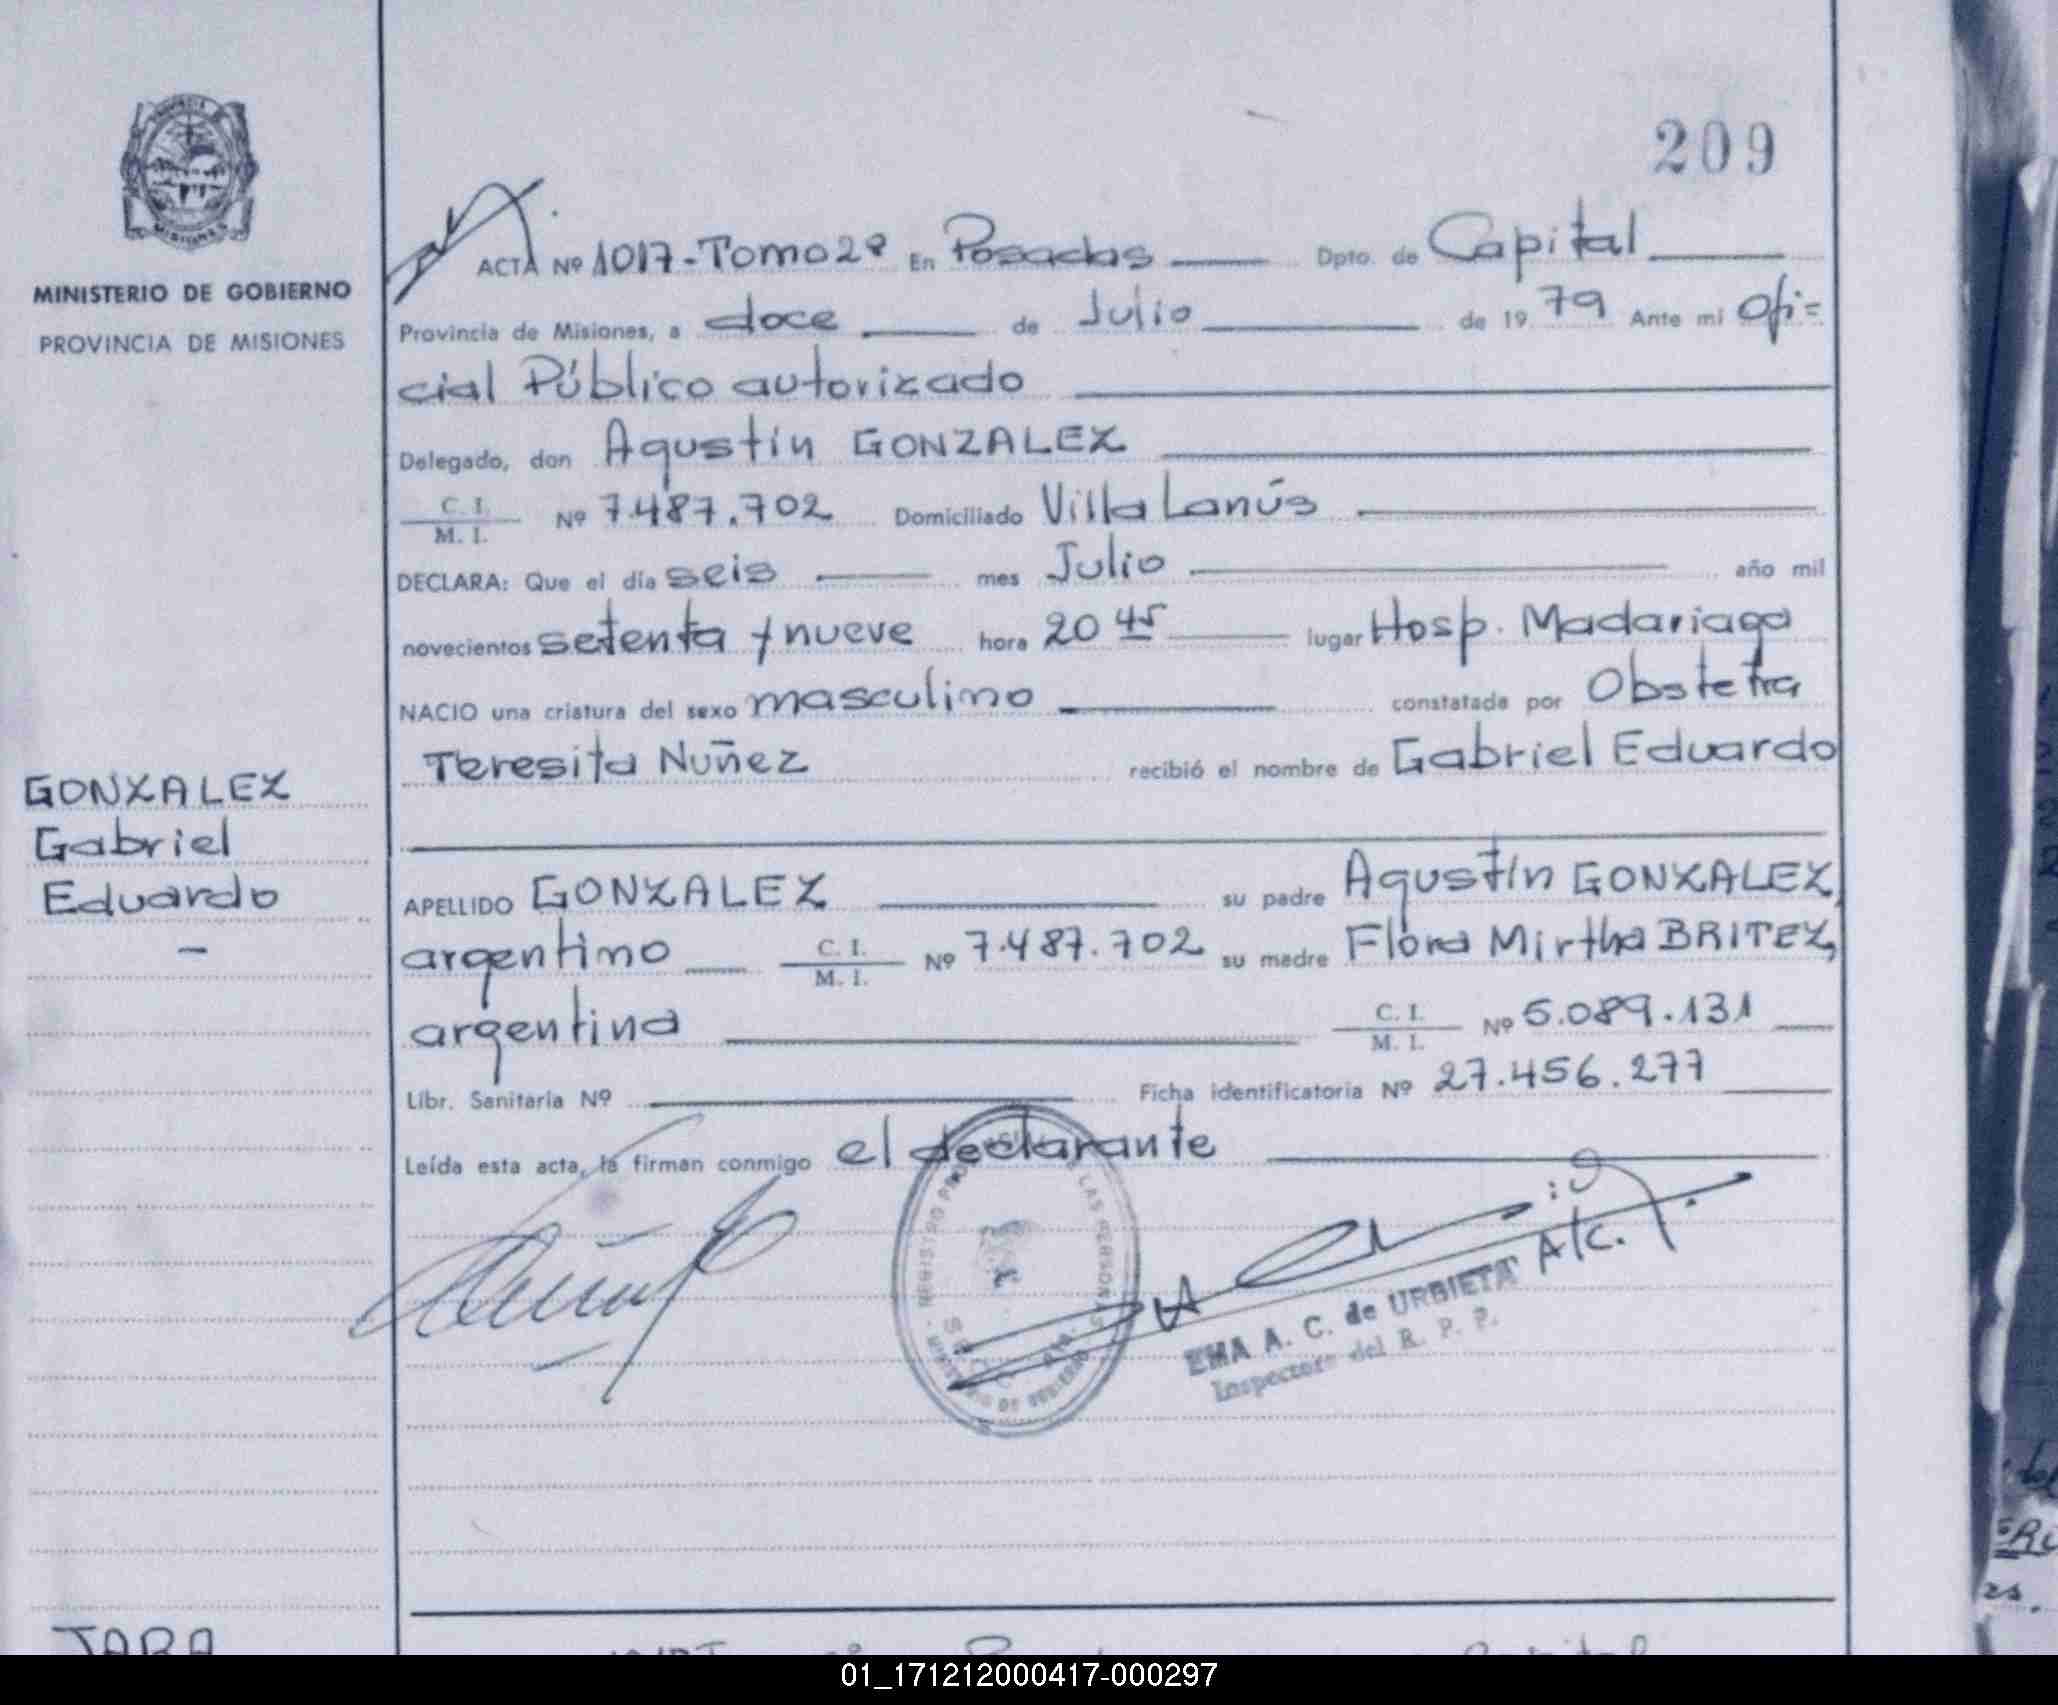 209
MINISTERIO DE GOBIERNO
PROVINCIA DE MISIONES
ACTA Nº 1017-Tomo 2º En Posadas Dpto. de Capital
Provincia de Misiones, a doce de Julio de 1979 Ante mi Ofi=
cial Público autorizado
Delegado, don Agustín GONZALEZ
C. I.
M. I. Nº 7.487.702 Domiciliado Villa Lanús
DECLARA: Que el día seis mes Julio año mil
novecientos setenta y nueve hora 20 45 lugar Hosp. Madariaga
NACIO una criatura del sexo masculino constatada por Obstetra
Teresita Nuñez recibió el nombre de Gabriel Eduardo
GONZALEZ
Gabriel
Eduardo
-
APELLIDO GONZALEZ su padre Agustín GONZALEZ,
argentino C. I.
M. I. Nº 7.487.702 su madre Flora Mirtha BRITEZ,
argentina C. I.
M. I. Nº 5.089.131
Libr. Sanitaria Nº Ficha identificatoria Nº 27.456.277
Leída esta acta, la firman conmigo el declarante
A/C.
EMA A. C. de URBIETA
Inspectora del R. P. P.
REGISTRO LAS PERSONAS
MINISTERIO DE GOBIERNO
JARA
01_171212000417-000297